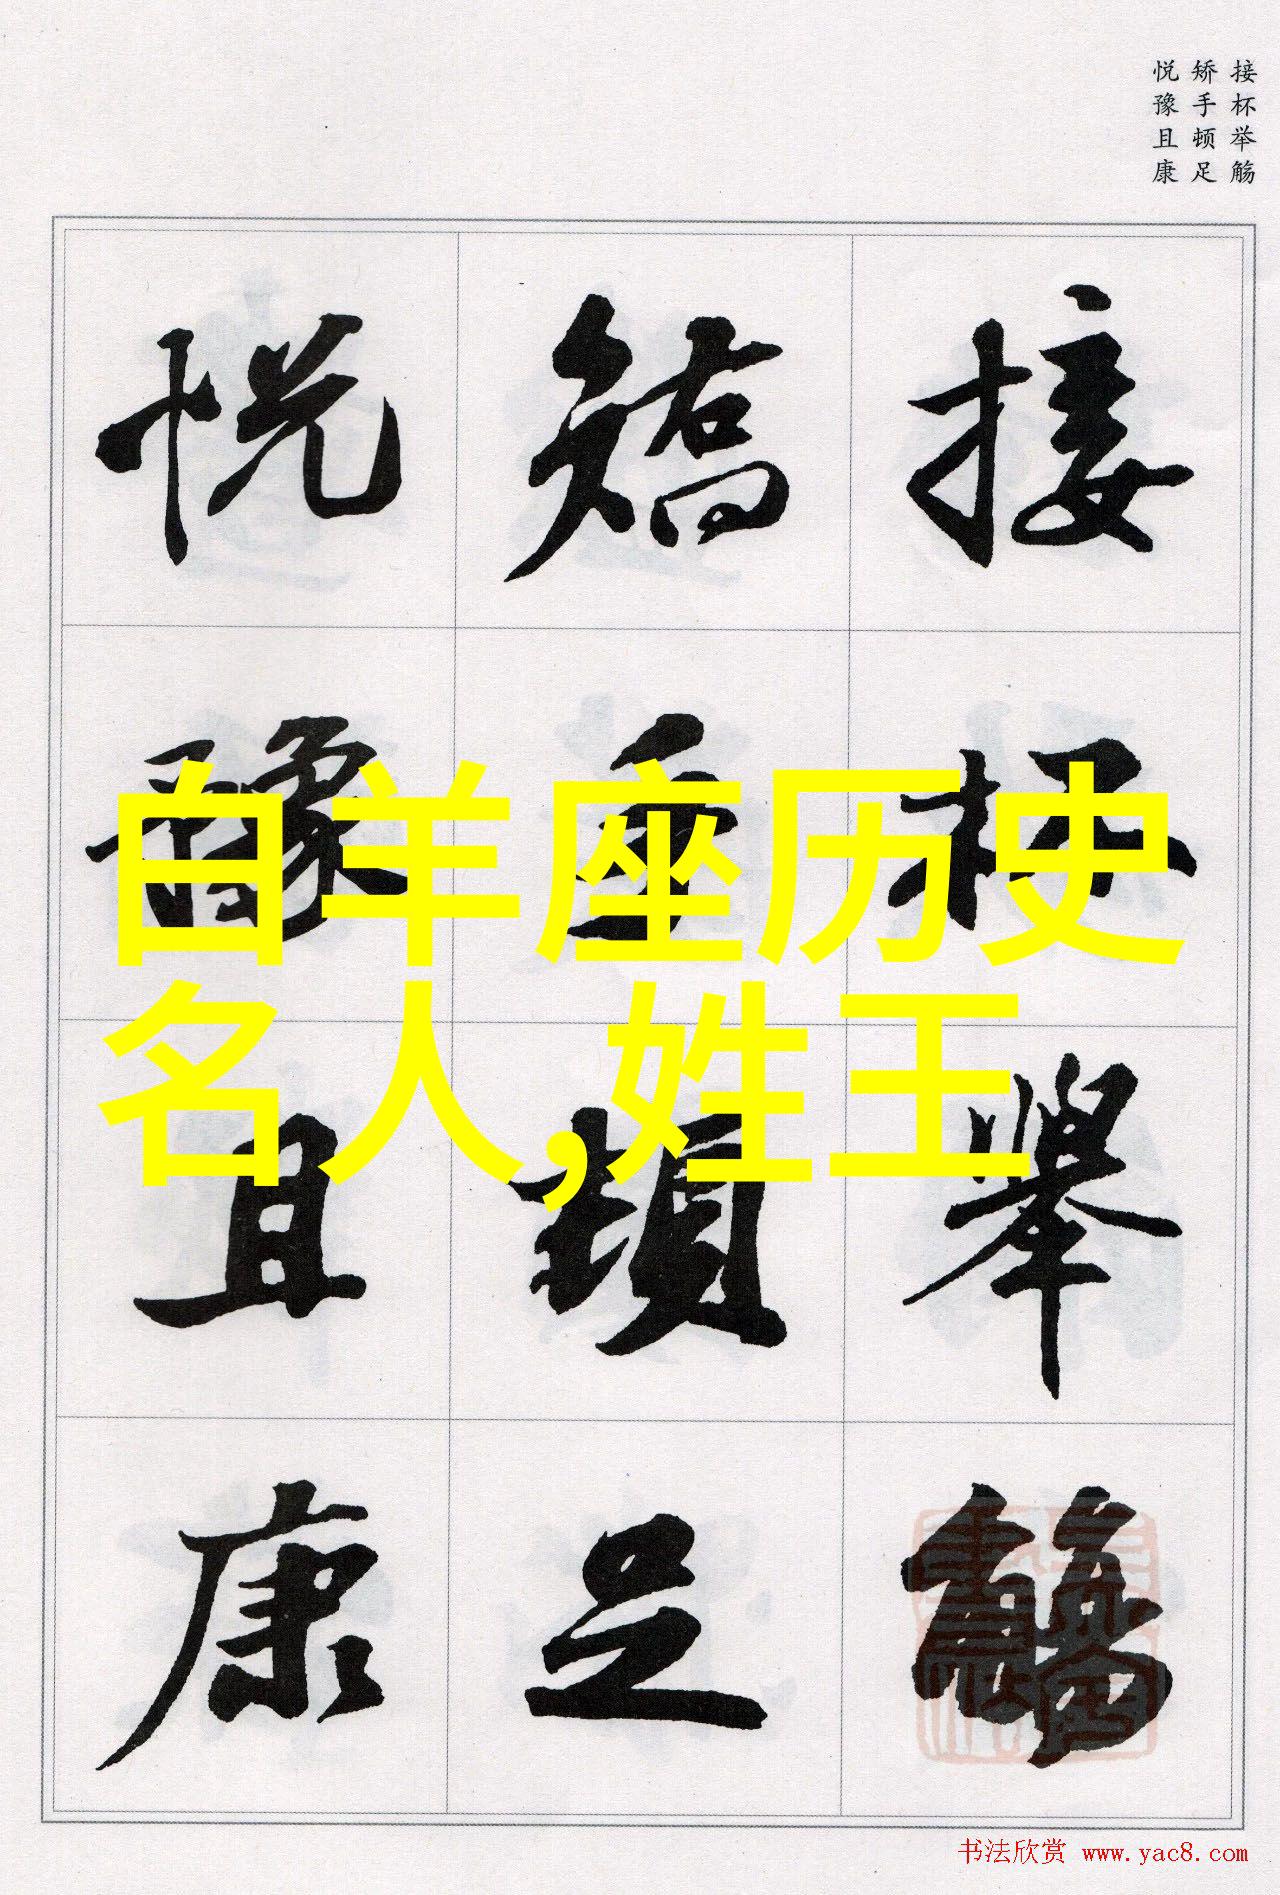 接杯举觞
矫手顿足
悦豫且康
接杯舉觴
矯手頓足
悦豫且康
白羊座历史
名人,姓王
书法欣赏 www.yac8.com